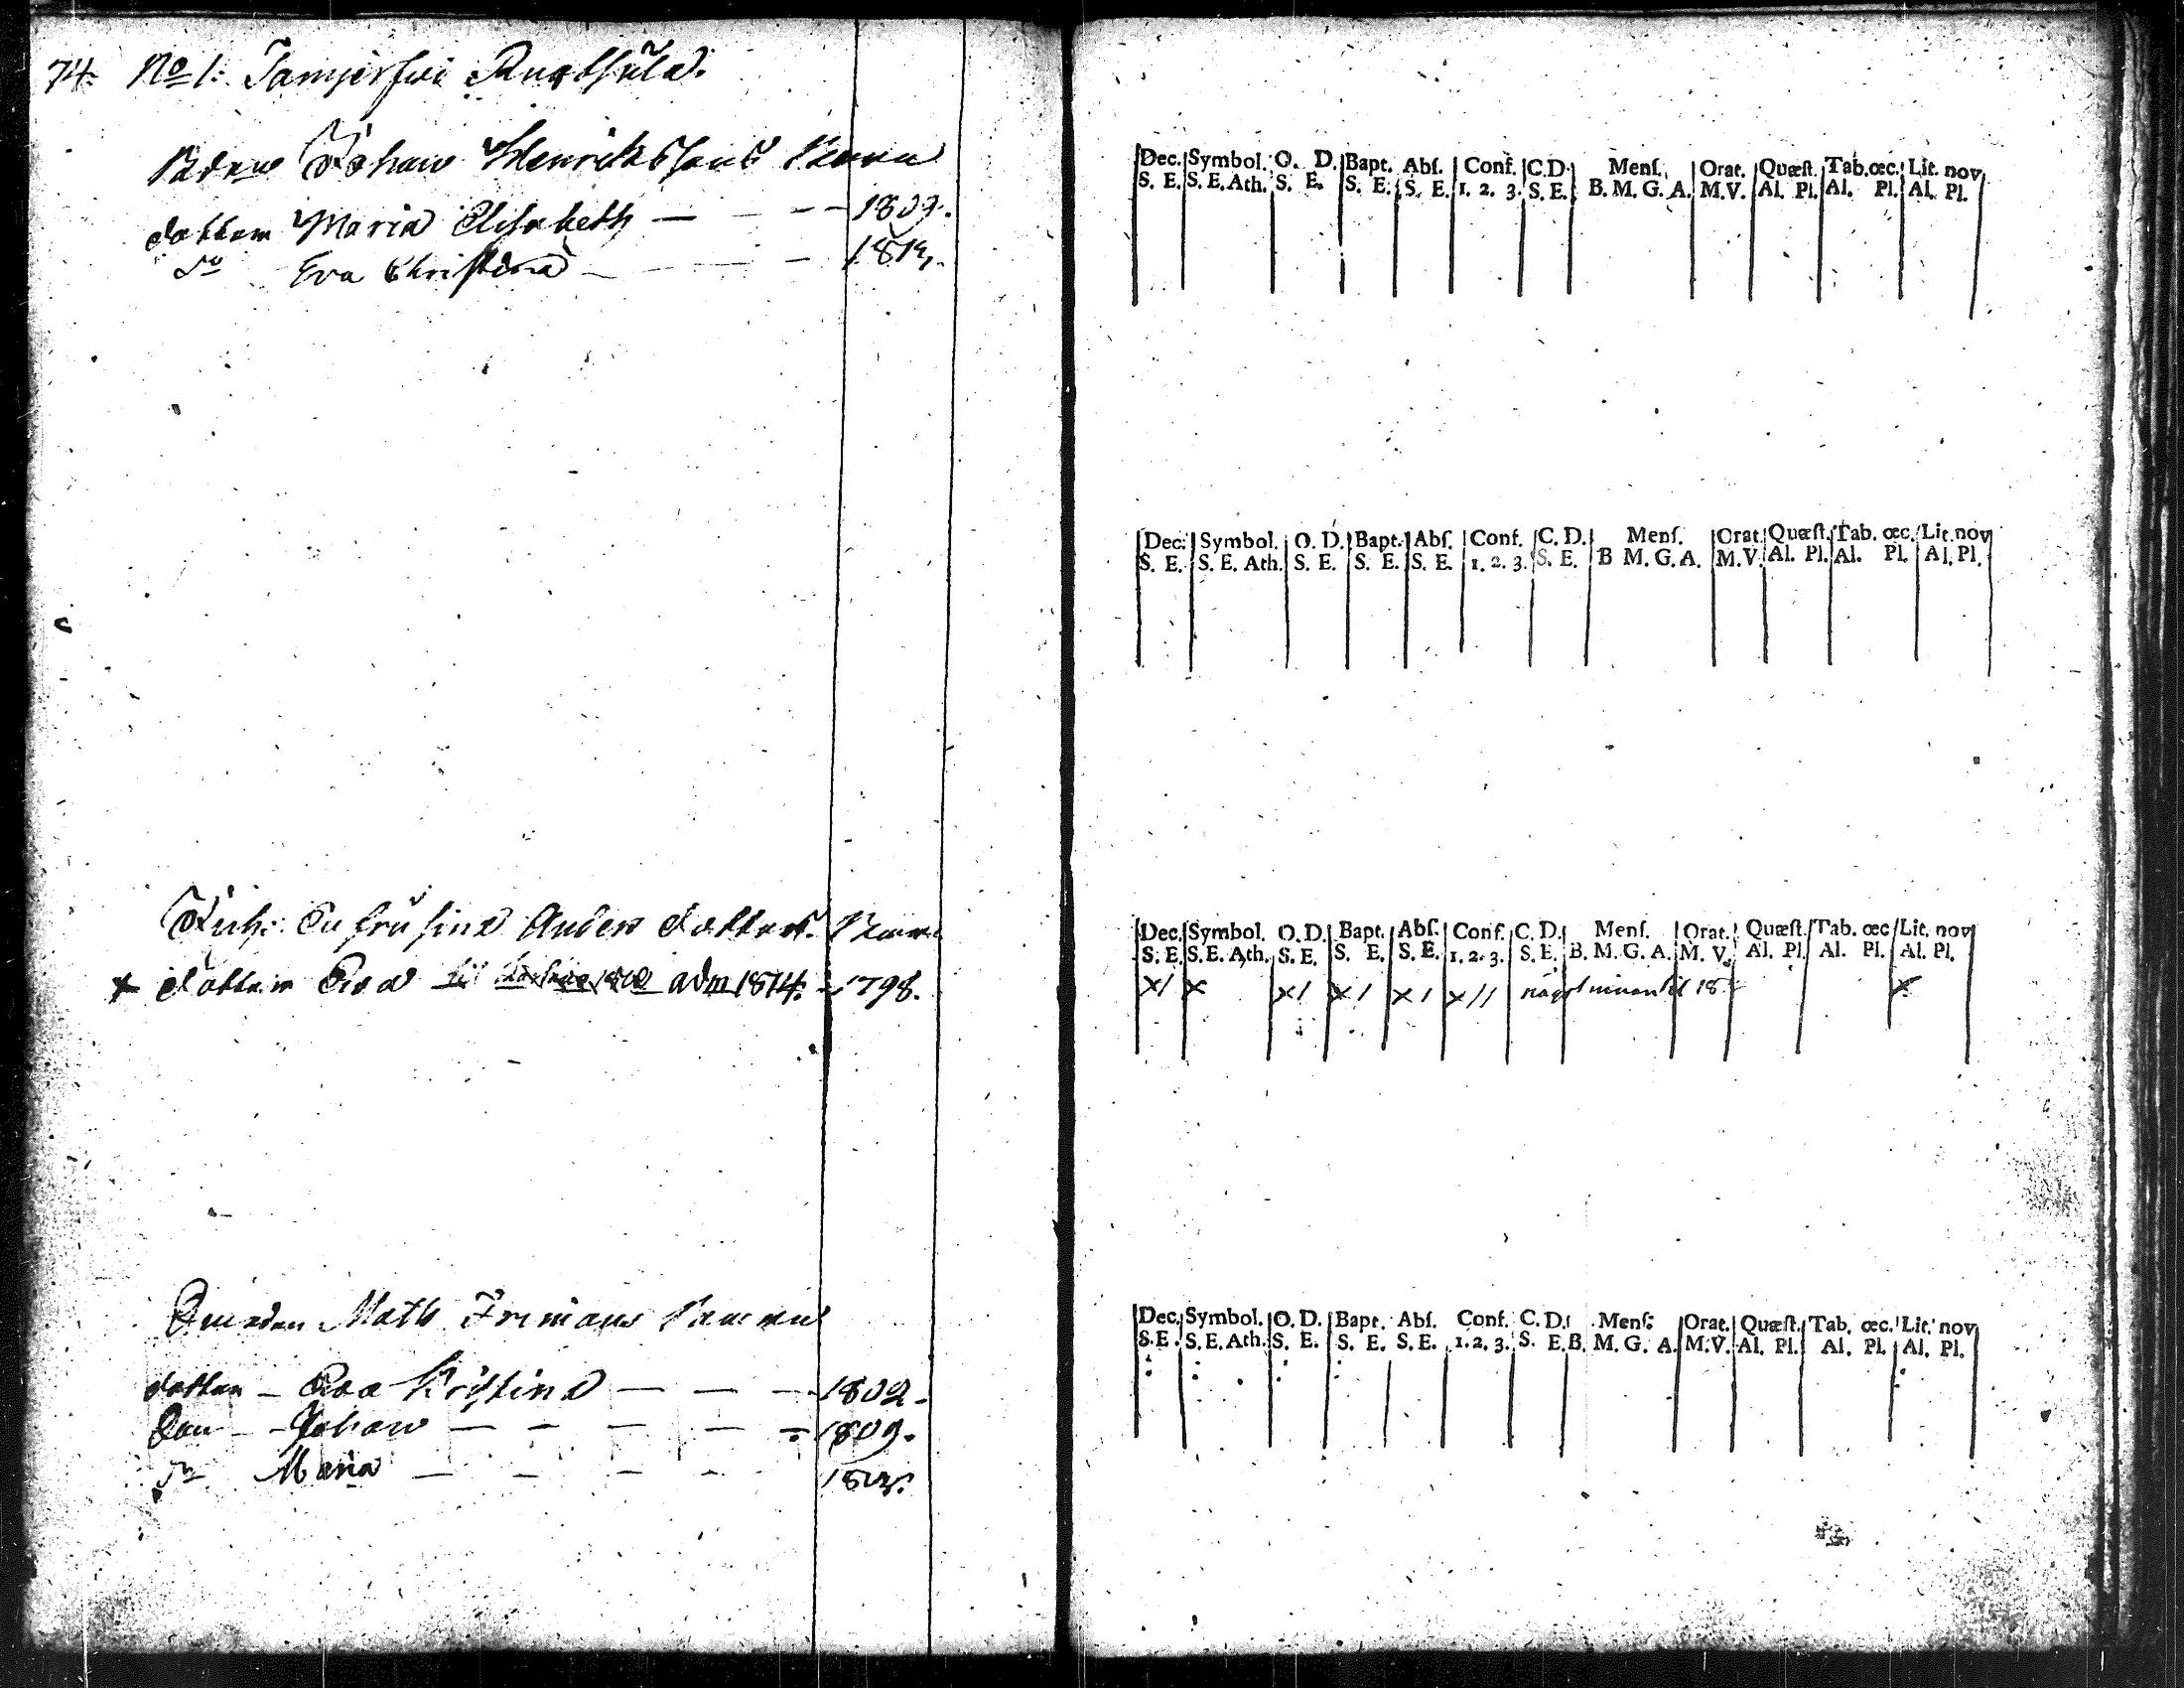 74. No 1: Tamjerfwi Knutsila.
Johan Henrikssons Barn
dottern Maria Elisabeth — — — 1809.
Do Eva Christina — — — 181
Enk: Eufrusina Anders dotters Barn
+ dottern Eva till adm 1814. 1798.
Math Frimans Barn
dottern – Eva Kristina — — — 1802.
Son – Johan — — — — 1809.
Dr Maria — — — —
Dec. Symbol. O. D. Bapt. Abſ. Conf. C.D. Menſ. Orat. Quæſt. Tab.œc. Lit. nov
S. E. S. E. Ath. S. E. S. E. S. E. 1. 2. 3. S. E. B. M. G. A. M.V. Al. Pl. Al. Pl. Al. Pl.
Dec. Symbol. O. D. Bapt. Abſ. Conf. C. D. Menſ. Orat. Quæſt. Tab. œc. Lit. nov
S. E. S. E. Ath. S. E. S. E. S. E. 1. 2. 3. S. E. B M. G. A. M.V. Al. Pl. Al. Pl. Al. Pl.
Dec. Symbol. O. D. Bapt. Abſ. Conf. C. D. Menſ. Orat. Quæſt. Tab. œc Lit. nov
S. E. S. E. Ath. S. E. S. E. S. E. 1. 2. 3. S. E. B. M. G. A. M. V. Al. Pl. Al. Pl. Al. Pl.
x/ x x/ x/ x/ x// 18 x
Dec. Symbol. O. D. Bapt. Abſ. Conf. C. D. Menſ. Orat. Quæſt. Tab. œc. Lit. nov
S. E. S. E. Ath. S. E. S. E. S. E. 1. 2. 3. S. E. B. M. G. A. M.V. Al. Pl. Al. Pl. Al. Pl.